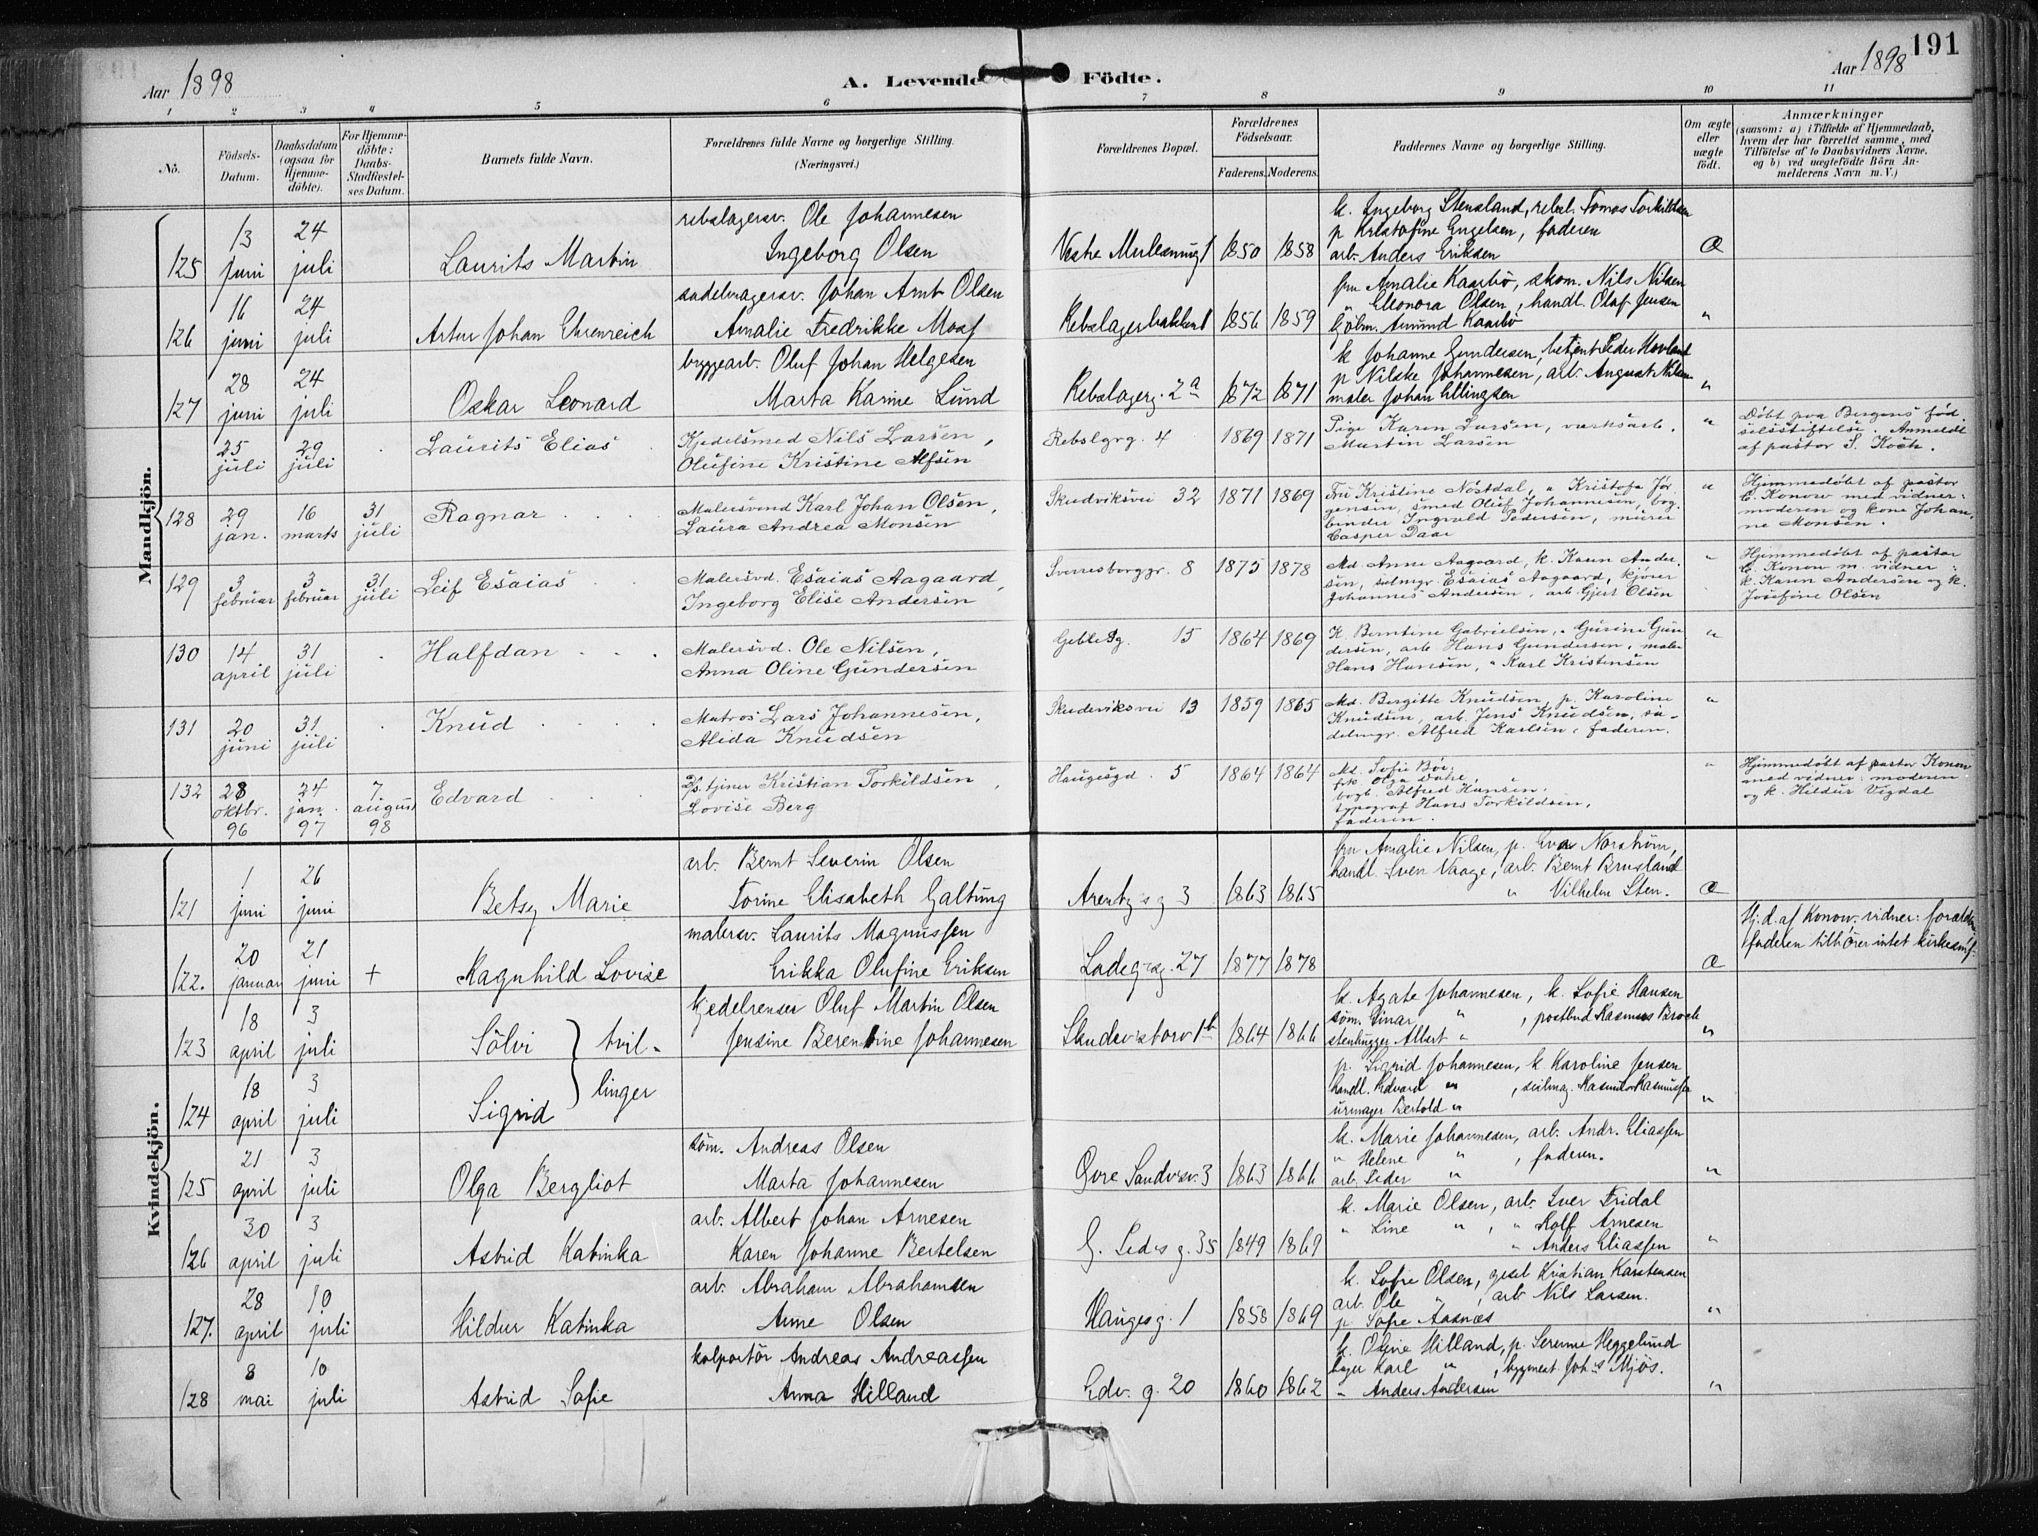 Aar 1898
A. Levende Födte.
Aar 1898
191
1 2 3 4 5 6 7 8 9 10 11
No.
Födsels-
Datum.
Daabsdatum
(ogsaa for
Hjemme-
döbte).
For Hjemme-
döbte:
Daabs-
Stadfæstel-
ses Datum.
Barnets fulde Navn.
Forældrenes fulde Navne og borgerlige Stilling.
(Næringsvei.)
Forældrenes Bopæl.
Forældrenes
Födselsaar.
Faderens. Moderens.
Faddernes Navne og borgerlige Stilling.
Om ægte
eller
uægte
født.
Anmærkninger
(saasom: a) i Tilfælde af Hjemmedaab,
hvem der har forrettet samme, med
Tilføielse af to Daabsvidners Navne,
og b) ved uegtefödte Börn An-
melderens Navn m. V.)
Mandkjön.
125 13 juni 24 juli Laurits Martin
rebslagersv. Ole Johannesen
Ingeborg Olsen
Vestre Mulesmug 1 1850 1858
k. Ingeborg Stensland, rebsl. Tomas Torkildsen
p Kristofine Engelsen, faderen
arb. Anders Eriksen
Æ
126 16 juni 24 juli Artur Johan Ehrenreich
sadelmagersv. Johan Arnt Olsen
Amalie Fredrikke Moss
Rebslagerbakken 1 1856 1859
fru Amalie Kaarbø, skom. Nils Nilsen
" Eleonora Olsen, handl. Olaf Jensen
kjøbm. Amund Kaarbø
"
127 28 juni 24 juli Oskar Leonard
byggearb. Oluf Johan Helgesen
Marta Karine Lund
Rebslagerg. 2a 1872 1871
k Johanne Gundersen, betjent Peder Hovland
p Nilske Johannesen, arb. August Nilsen
maler Johan Ellingsen
"
25 juli 29 juli Laurits Elias
Kjedelsmed Nils Larsen,
Olufine Kristine Alfsen
Rebslgrg. 4 1869 1871
Pige Karen Larsen, verksarb.
Martin Larsen
"
Døbt paa Bergens fød-
selsstiftelse. Anmeldt
af pastor S. Koch.
128 29 jan. 16 marts 31 juli Ragnar
Malersvend Karl Johan Olsen,
Laura Andrea Monsen
Skudviksvei 32 1871 1869
Fru Kristine Nøstdal, " Kristofa Jør
gensen, smed Oluf Johannesen, bog-
binder Ingvald Pedersen, murer
Casper Daae
"
Hjemmedøbt af pastor
C. Konow med vidner:
moderen og kone Johan-
ne Monsen.
129 3 februar 3 februar 31 juli Leif Esaias
Malersvd. Esaias Aagaard,
Ingeborg Elise Andersen
Sverresborggr. 8 1875 1878
Md Anne Aagaard, k. Karen Ander-
sen, seilmgr Esaias Aagaard, kjører
Johannes Andersen, arb. Gjert Olsen
"
Hjemmedøbt af pastor
C. Konow m. vidner:
k. Karen Andersen og k.
Josefine Olsen
130 14 april 31 juli Halfdan
Malersvd. Ole Nilsen,
Anna Oline Gundersen
Geblesg. 15 1864 1869
K. Berntine Gabrielsen, " Gurine Gun
dersen, arb. Hans Gundersen, maler
Hans Hansen, " Karl Kristensen
"
131 20 juni 31 juli Knud
Matros Lars Johannesen,
Alida Knudsen
Skudeviksvei 13 1859 1865
Md. Bergitte Knudsen, p. Karoline
Knudsen, arb. Jens Knudsen, sa-
delmgr. Alfred Karlsen, faderen.
"
132 28 oktbr. 96 24 jan. 97 7 august 98 Edvard
Ps. tjener Kristian Torkildsen,
Lovise Berg
Haugesgd. 5 1864 1864
Md. Sofie Bøe,
frk Olga
bogb. Alfred Hansen,
typograf Hans Torkildsen,
faderen.
"
Hjemmedøbt af pastor Konow
med vidner: moderen
og k. Hildur Vigdal
Kvindekjön.
121 1 juni 26 juni Betsy Marie
arb. Bernt Severin Olsen
Torine Elisabeth Galtung
Arentzsg 3 1863 1865
fru Amalie Nilsen, p. Eva Norstrøm,
handl. Sven Vaage, arb. Bernt Brusland
" Vilhelm Sten.
Æ
122. 20 januar 21 juni + Ragnhild Lovise
malersv. Laurits Magnussen
Erikka Olufine Eriksen
Ladegrsg. 27 1877 1878
Æ
Hj. d. af Konow. vidner: forældr.
faderen tilhører intet kirkesamf.
123 18 april 3 juli Sölvi
tvil-
linger
kjedelrenser Oluf Martin Olsen
Jensine Berentine Johannesen
Skudevstorv 1b 1864 1866
k. Agate Johannesen, k. Sofie Hansen
søm. Einar " , postbud Rasmus Broch
stenhugger Albert "
"
124 18 april 3 juli Sigrid
p. Sigrid Johannesen, k. Karoline Jensen
handl. Edvard " , seilmag. Rasmus Rasmussen
urmager Bertold "
"
125 21 april 3 juli Olga Bergliot
søm. Andreas Olsen
Marta Johannesen
Øvre Sandvsv. 3 1863 1866
k. Marie Johannesen, arb. Andr. Eliassen
" Helene " , faderen.
arb. Peder "
"
126 30 april 3 juli Astrid Katinka
arb. Albert Johan Arnesen
Karen Johanne Bertelsen
1849 1869
k. Marie Olsen, arb. Iver Fridal
" Line " , " Rolf Arnesen
" Anders Eliassen
"
127. 28 april 10 juli Hildur Katinka
arb. Abraham Abrahamsen
Anne Olsen
Haugesg. 1 1858 1869
k. Sofie Olsen, gesel Kristian Karstensen
arb. Ole " , arb. Nils Larsen.
p Sofie Aasnæs
"
128 8 mai 10 juli Astrid Sofie
kolportör Andreas Andreassen
Anna Hilland
Edv. g. 20 1860 1862
k. Oline Hilland, p. Serenne Heggelund
bager Karl " , bygmest. Johs Mjøs.
" Anders Andersen
"